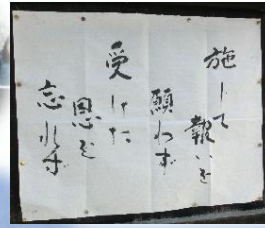 施して
報いを
願わず
受けた
恩を
忘れず